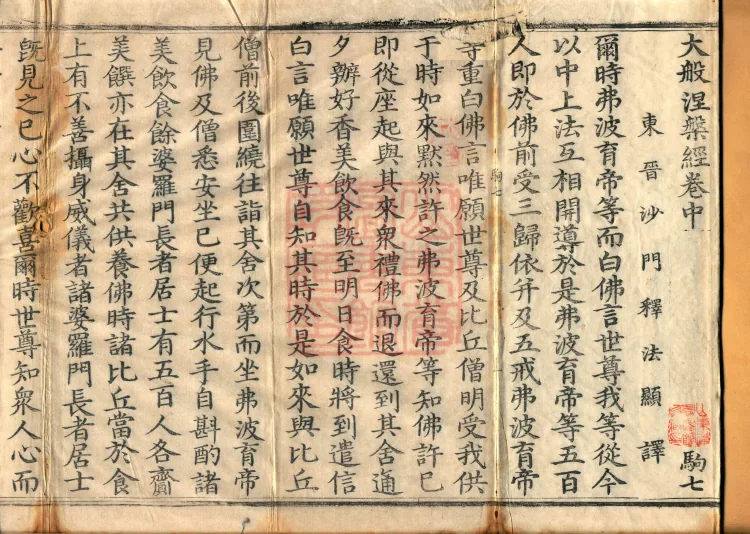 大般涅槃經卷中
駒七
東晉沙門釋法顯譯
爾時弗波育帝等而白佛言世尊我等從今
以中上法互相開導於是弗波育帝等五百
人即於佛前受三歸依并及五戒弗波育帝
等重白佛言唯願世尊及比丘僧明受我供
于時如來默然許之弗波育帝等知佛許已
即從座起與其來衆禮佛而退還到其舍通
夕辦好香美飲食旣至明日食時將到遣信
白言唯願世尊自知其時於是如來與比丘
僧前後圍繞往詣其舍次第而坐弗波育帝
見佛及僧悉安坐已便起行水手自斟酌諸
美飲食餘婆羅門長者居士有五百人各齎
美饌亦在其舍共供養佛時諸比丘當於食
上有不善攝身威儀者諸婆羅門長者居士
旣見之已心不歡喜爾時世尊知衆人心而
駒七